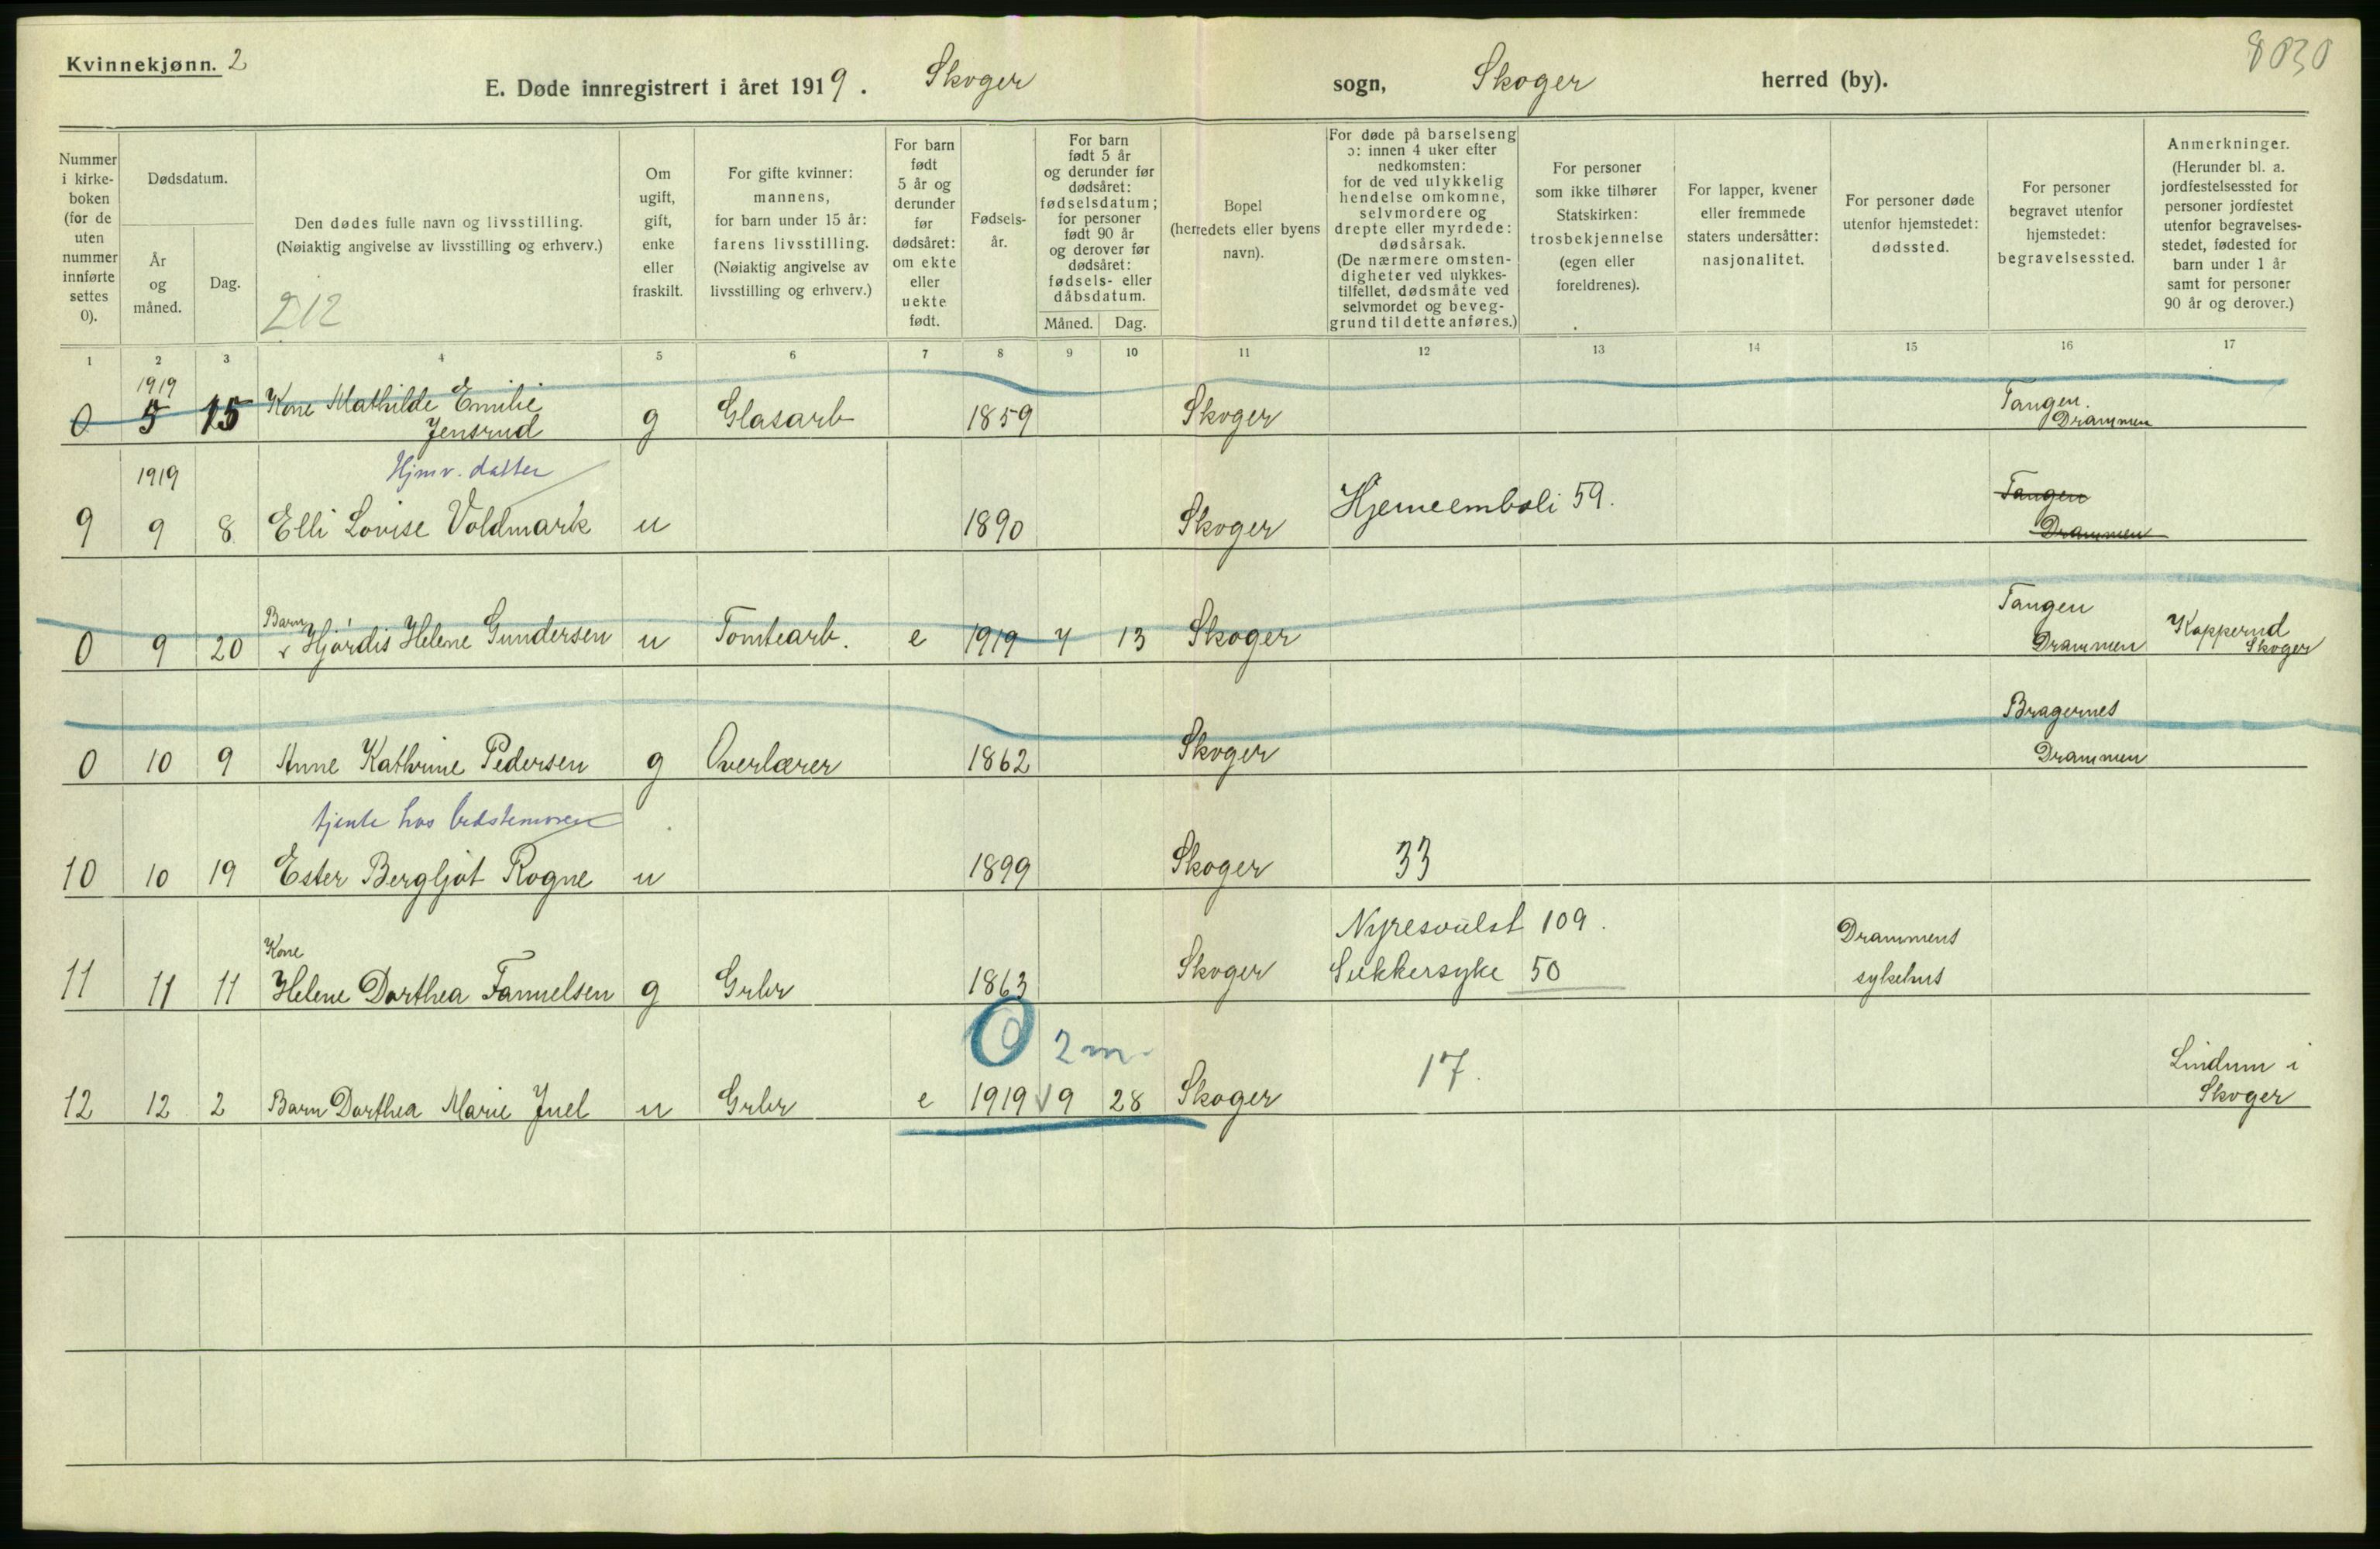 Kvinnekjønn. 2
8030
E. Døde innregistrert i året 1919. Skoger sogn, Skoger herred (by).
Nummer i kirke-boken (for de uten nummer innførte settes 0).
Dødsdatum.
År og måned.
Dag.
Den dødes fulle navn og livsstilling.
(Nøiaktig angivelse av livsstilling og erhverv.)
212
Om ugift, gift, enke eller fraskilt.
For gifte kvinner: mannens, for barn under 15 år: farens livsstilling. (Nøiaktig angivelse av livsstilling og erhverv.)
For barn født 5 år og derunder før dødsåret: om ekte eller uekte født.
Fødsels-år.
For barn født 5 år og derunder før dødsåret: fødselsdatum; for personer født 90 år og derover før dødsåret: fødsels- eller dåbsdatum.
Måned. Dag.
Bopel (herredets eller byens navn).
For døde på barselseng ɔ: innen 4 uker efter nedkomsten: for de ved ulykkelig hendelse omkomne, selvmordere og drepte eller myrdede: dødsårsak. (De nærmere omsten-digheter ved ulykkes-tilfellet, dødsmåte ved selvmordet og beveg-grund til dette anføres.)
For personer som ikke tilhører Statskirken: trosbekjennelse (egen eller foreldrenes).
For lapper, kvener eller fremmede staters undersåtter: nasjonalitet.
For personer døde utenfor hjemstedet: dødssted.
For personer begravet utenfor hjemstedet: begravelsessted.
Anmerkninger. (Herunder bl. a. jordfestelsessted for personer jordfestet utenfor begravelses-stedet, fødested for barn under 1 år samt for personer 90 år og derover.)
1 2 3 4 5 6 7 8 9 10 11 12 13 14 15 16 17
1919
0 5 15 Kone Mathilde Emilie Jensrud g Glasarb 1859 Skoger Tangen. Drammen
1919 Hjmv. datter
9 9 8 Elli Lovise Voldmark u 1890 Skoger Hjerneemboli 59. Tangen Drammen
0 9 20 Barn Hjørdis Helene Gundersen u Tomtearb. e 1919 7 13 Skoger Tangen Drammen Kopperud Skoger
0 10 9 Anne Kathrine Pedersen g Overlærer 1862 Skoger Bragernes Drammen
tjente hos bedstemoren
10 10 19 Ester Bergljot Rogne u 1899 Skoger 33
11 11 11 Kone Helene Dorthea Fannelsen g Grbr 1863 Skoger Nyresvulst 109. Sukkersyke 50 Drammens sykehus
0 2 m
12 12 2 Barn Dorthea Marie Juel u Grbr e 1919 9 28 Skoger 17. Lindum i Skoger